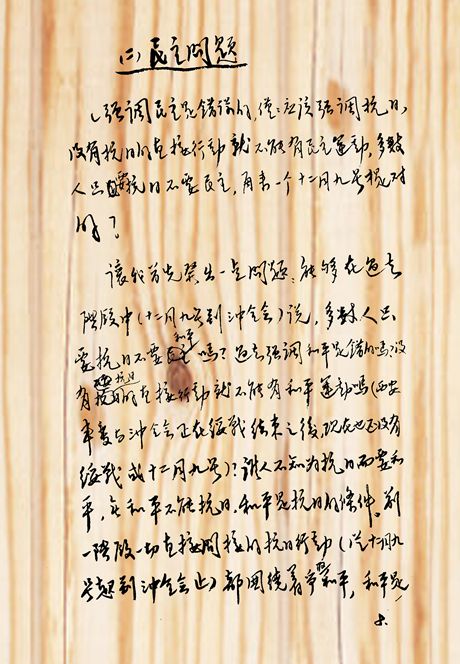 (二)民主问题
“强调民主是错误的,僅々应该强调抗日,
没有抗日的直接行动就不能有民主運动,多数
人只要抗日不要民主,再来一个十二月九号是对
的”?
讓我首先發出一点問题:能够在过去
階段中(十二月九号到三中全会)说,多数人只
要抗日不要和平吗?过去强调和平是错的吗?没
有抗日的直接行动就不能有和平運动吗(西安
事变与三中全会正在绥戰结束之後,现在也还没有
绥戰或十二月九号)?誰人不知为抗日而要和
平,無和平不能抗日,和平是抗日的條件。前
一階段一切直接間接的抗日行动(從十二月九
号起到三中全会止)都圍绕着争取和平,和平是
8.